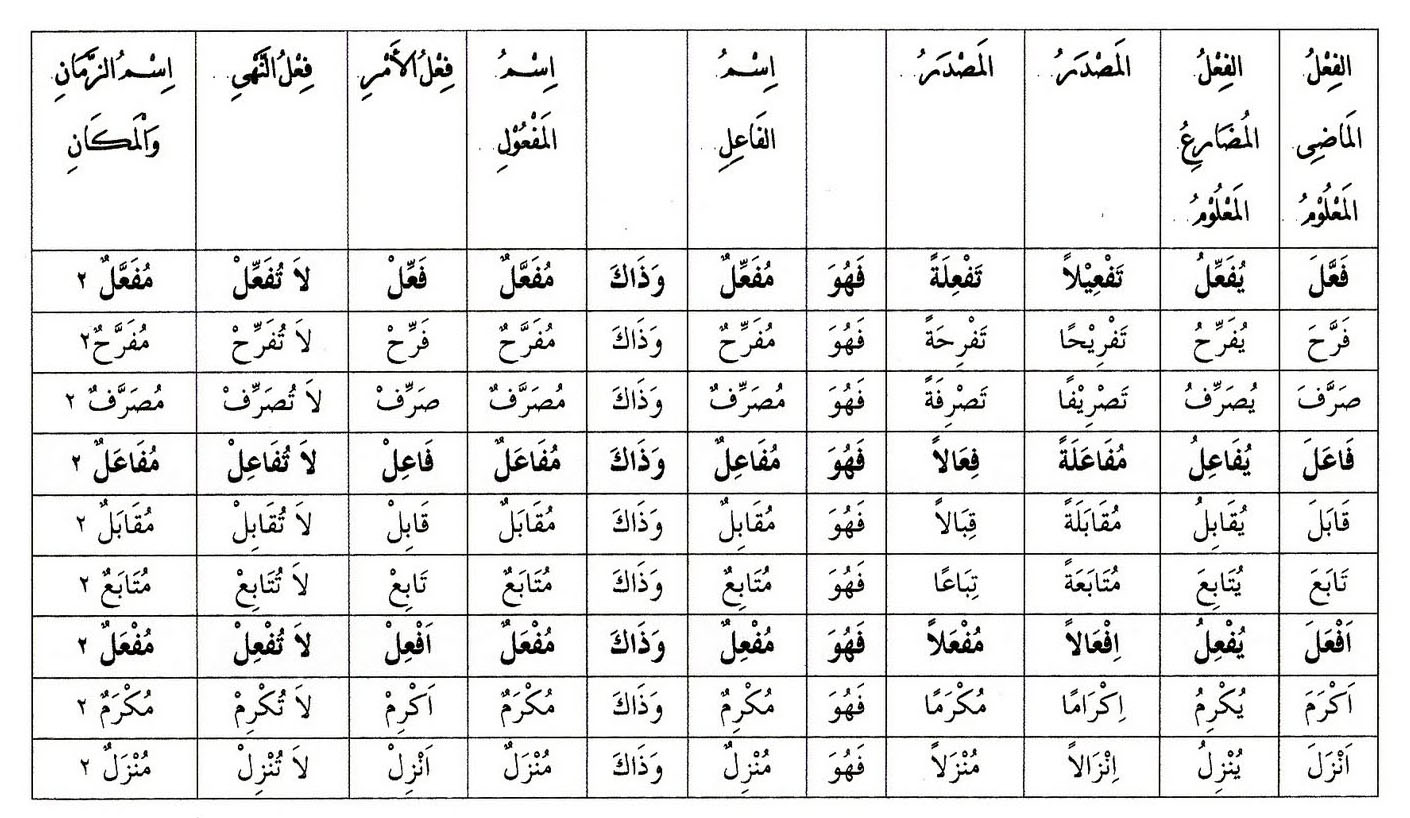 الفِعْلُ المَاضِى المَعْلُوْمُ | الفِعْلُ المُضَارِعُ المَعْلُوْمُ | المَصْدَرُ | المَصْدَرُ | | اِسْمُ الفَاعِلِ | | اِسْمُ المَفْعُوْلِ | فِعْلُ الأَمْرِ | فِعْلُ النَّهْىِ | اِسْمُ الزَّمَانِ وَالْمَكَانِ
فَعَّلَ | يُفَعِّلُ | تَفْعِيْلاً | تَفْعِلَةً | فَهُوَ | مُفَعِّلٌ | وَذَاكَ | مُفَعَّلٌ | فَعِّلْ | لاَ تُفَعِّلْ | مُفَعَّلٌ ٢
فَرَّحَ | يُفَرِّحُ | تَفْرِيْحًا | تَفْرِحَةً | فَهُوَ | مُفَرِّحٌ | وَذَاكَ | مُفَرَّحٌ | فَرِّحْ | لاَ تُفَرِّحْ | مُفَرَّحٌ ٢
صَرَّفَ | يُصَرِّفُ | تَصْرِيْفًا | تَصْرِفَةً | فَهُوَ | مُصَرِّفٌ | وَذَاكَ | مُصَرَّفٌ | صَرِّفْ | لاَ تُصَرِّفْ | مُصَرَّفٌ ٢
فَاعَلَ | يُفَاعِلُ | مُفَاعَلَةً | فِعَالاً | فَهُوَ | مُفَاعِلٌ | وَذَاكَ | مُفَاعَلٌ | فَاعِلْ | لاَ تُفَاعِلْ | مُفَاعَلٌ ٢
قَابَلَ | يُقَابِلُ | مُقَابَلَةً | قِبَالاً | فَهُوَ | مُقَابِلٌ | وَذَاكَ | مُقَابَلٌ | قَابِلْ | لاَ تُقَابِلْ | مُقَابَلٌ ٢
تَابَعَ | يُتَابِعَ | مُتَابَعَةً | تِبَاعًا | فَهُوَ | مُتَابِعٌ | وَذَاكَ | مُتَابَعٌ | تَابِعْ | لاَ تُتَابِعْ | مُتَابَعٌ ٢
اَفْعَلَ | يُفْعِلُ | اِفْعَالاً | مُفْعَلاً | فَهُوَ | مُفْعِلٌ | وَذَاكَ | مُفْعَلٌ | اَفْعِلْ | لاَ تُفْعِلْ | مُفْعَلٌ ٢
اَكْرَمَ | يُكْرِمُ | اِكْرَامًا | مُكْرَمًا | فَهُوَ | مُكْرِمٌ | وَذَاكَ | مُكْرَمٌ | اَكْرِمْ | لاَ تُكْرِمْ | مُكْرَمٌ ٢
اَنْزَلَ | يُنْزِلُ | اِنْزَالاً | مُنْزَلاً | فَهُوَ | مُنْزِلٌ | وَذَاكَ | مُنْزَلٌ | اَنْزِلْ | لاَ تُنْزِلْ | مُنْزَلٌ ٢